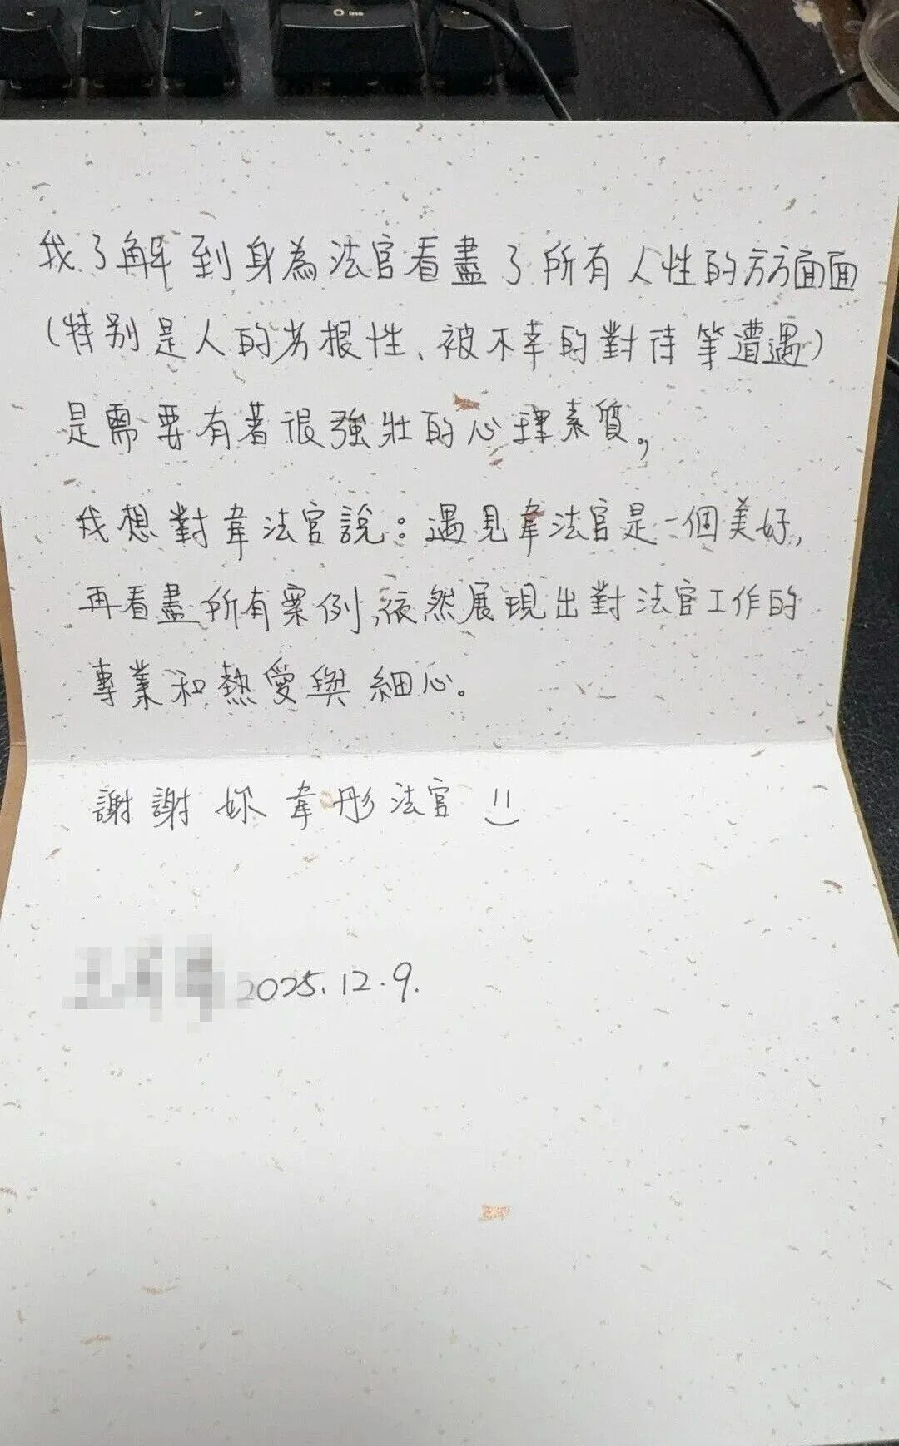 我了解到身為法官看盡了所有人性的方方面面
(特別是人的劣根性、被不幸的對待等遭遇)
是需要有著很強壯的心理素質。,
我想對韋法官說:遇見韋法官是一個美好,
再看盡所有案例,依然展現出對法官工作的
專業和熱愛與細心。
謝謝妳 韋彤法官 !!
2025.12.9.